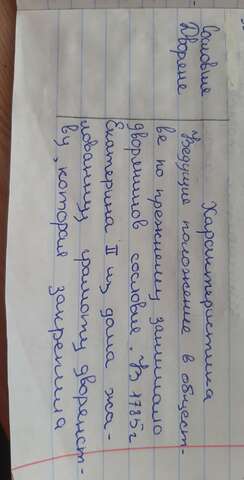 Сословие Характеристика
Дворяне Ведущие положение в общест-
ве по прежнему занимало
дворянинов сословие. В 1785 г
Екатерина II из дала жа-
лованную грамоту дворянст-
ву, которая закрепила